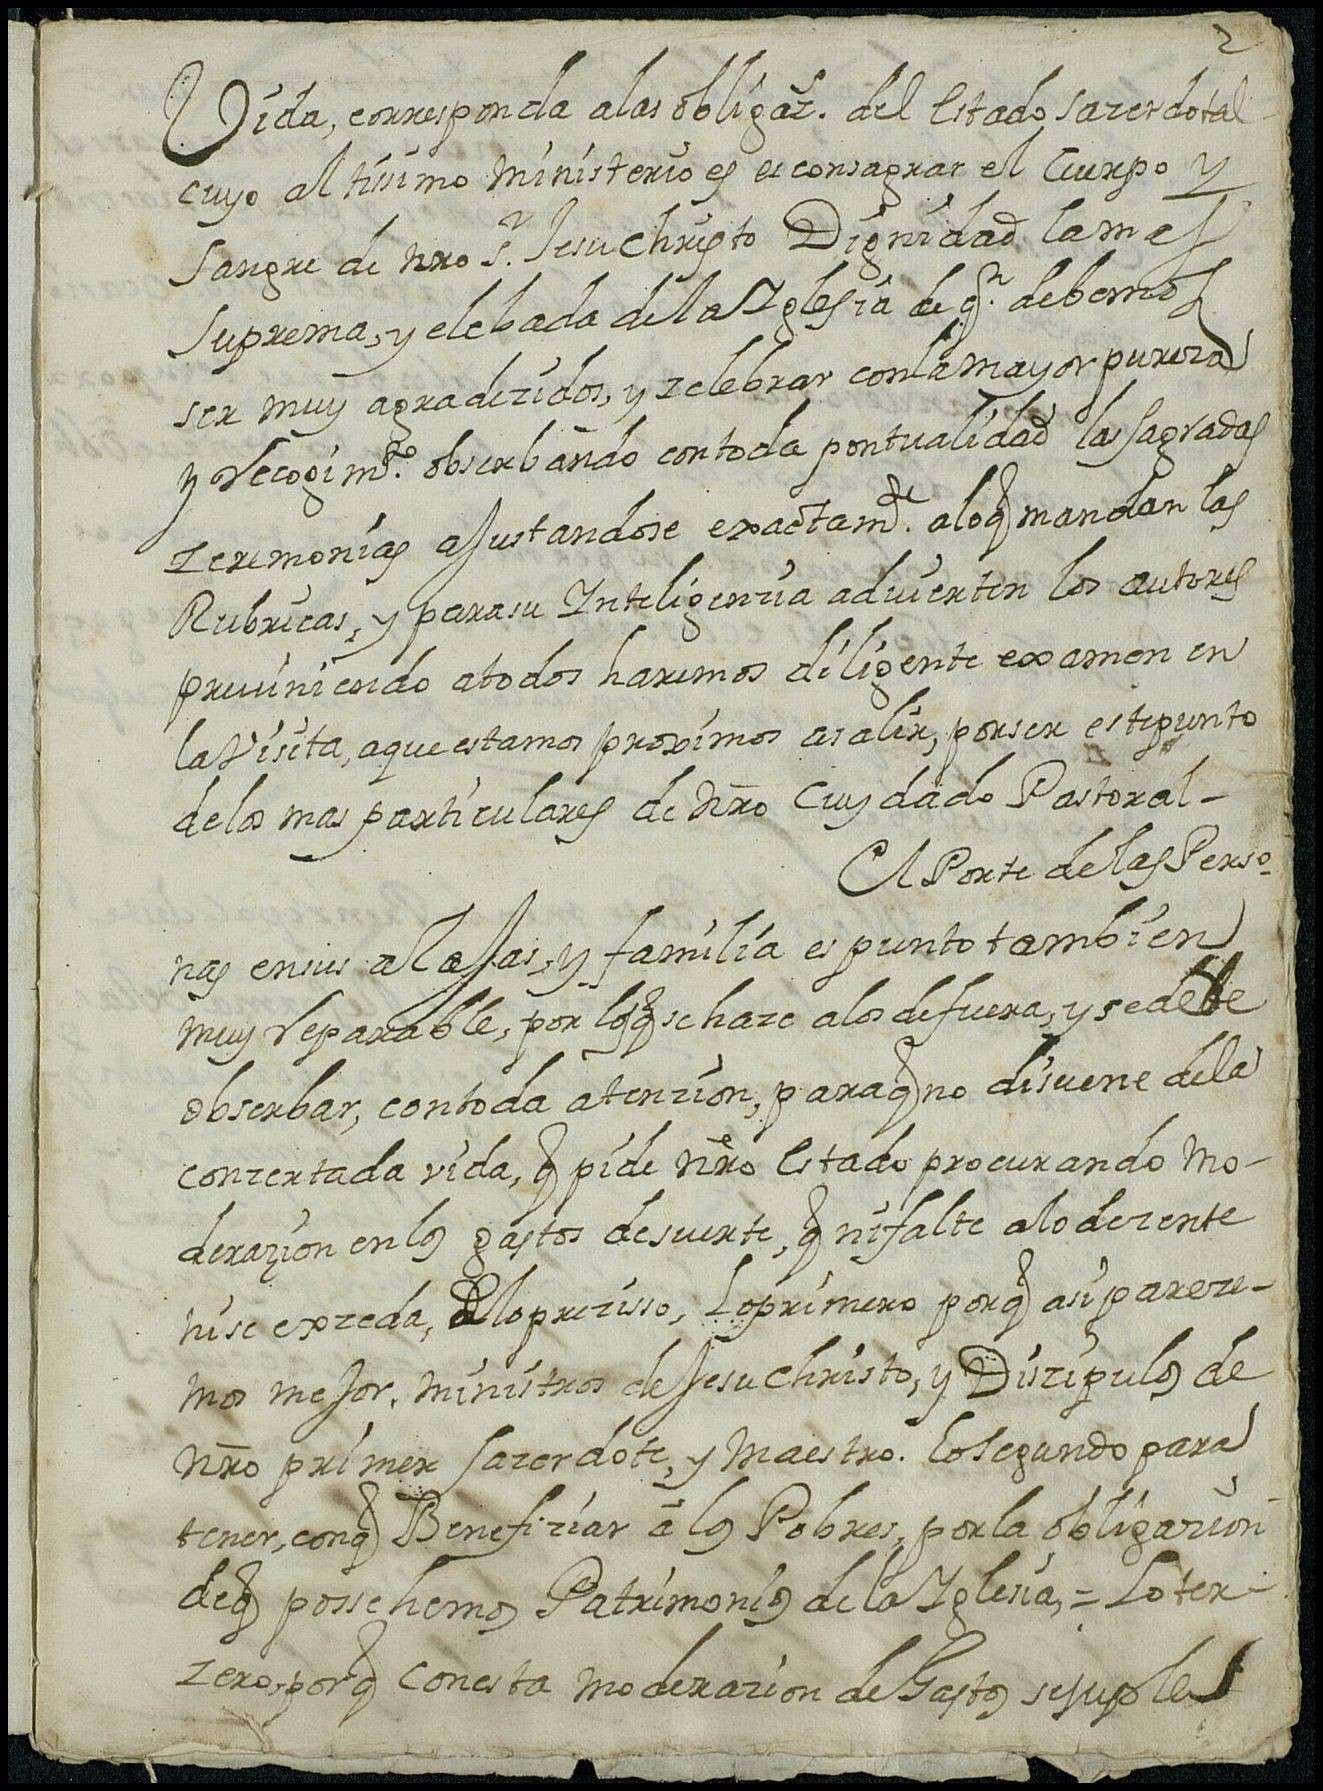 2
Vida, corresponda alas obligaz.s del Estado Sazerdotal
cuyo altissimo ministerio es es consagrar el Cuerpo y
Sangre de nro S.r JesuChristo Dignidad la mas
Suprema, y elebada dela Yglesia de q.n debemos
ser muy agradezidos, y zelebrar conla mayor pureza
y recogim.to obserbando contoda pontualidad las sagradas
zeremonias aJustandose exactam.te aloq mandan las
Rubricas, y parasu Inteligenzia advierten los autores
previniendo atodos haremos diligente examen en
la Visita, aque estamos proximos asalir, porser estepunto
delos mas particulares de nro Cuydado Pastoral-
El Porte delas Perso-
nas ensus alaJas, y familia es punto tambien
muy reparable, por loq se haze alos defuera, y se debe
obserbar, contoda atenzion, paraq no disuene dela
conzertada vida, q pide nro Estado procurando mo-
derazion enlos gastos desuerte, q nifalte alo dezente
nise exzeda, alo prezisso, Lo primero porq asi pareze-
mos meJor, ministros de JesuChristo, y Diszipulos de
nro primer Sazerdote, y Maestro. Lo segundo para
tener, conq Benefiziar á los Pobres, porla obligazion
deq possehemos Patrimonios dela Yglesia, = Lo ter-
zero, porq conesta moderazion de Gastos se suple